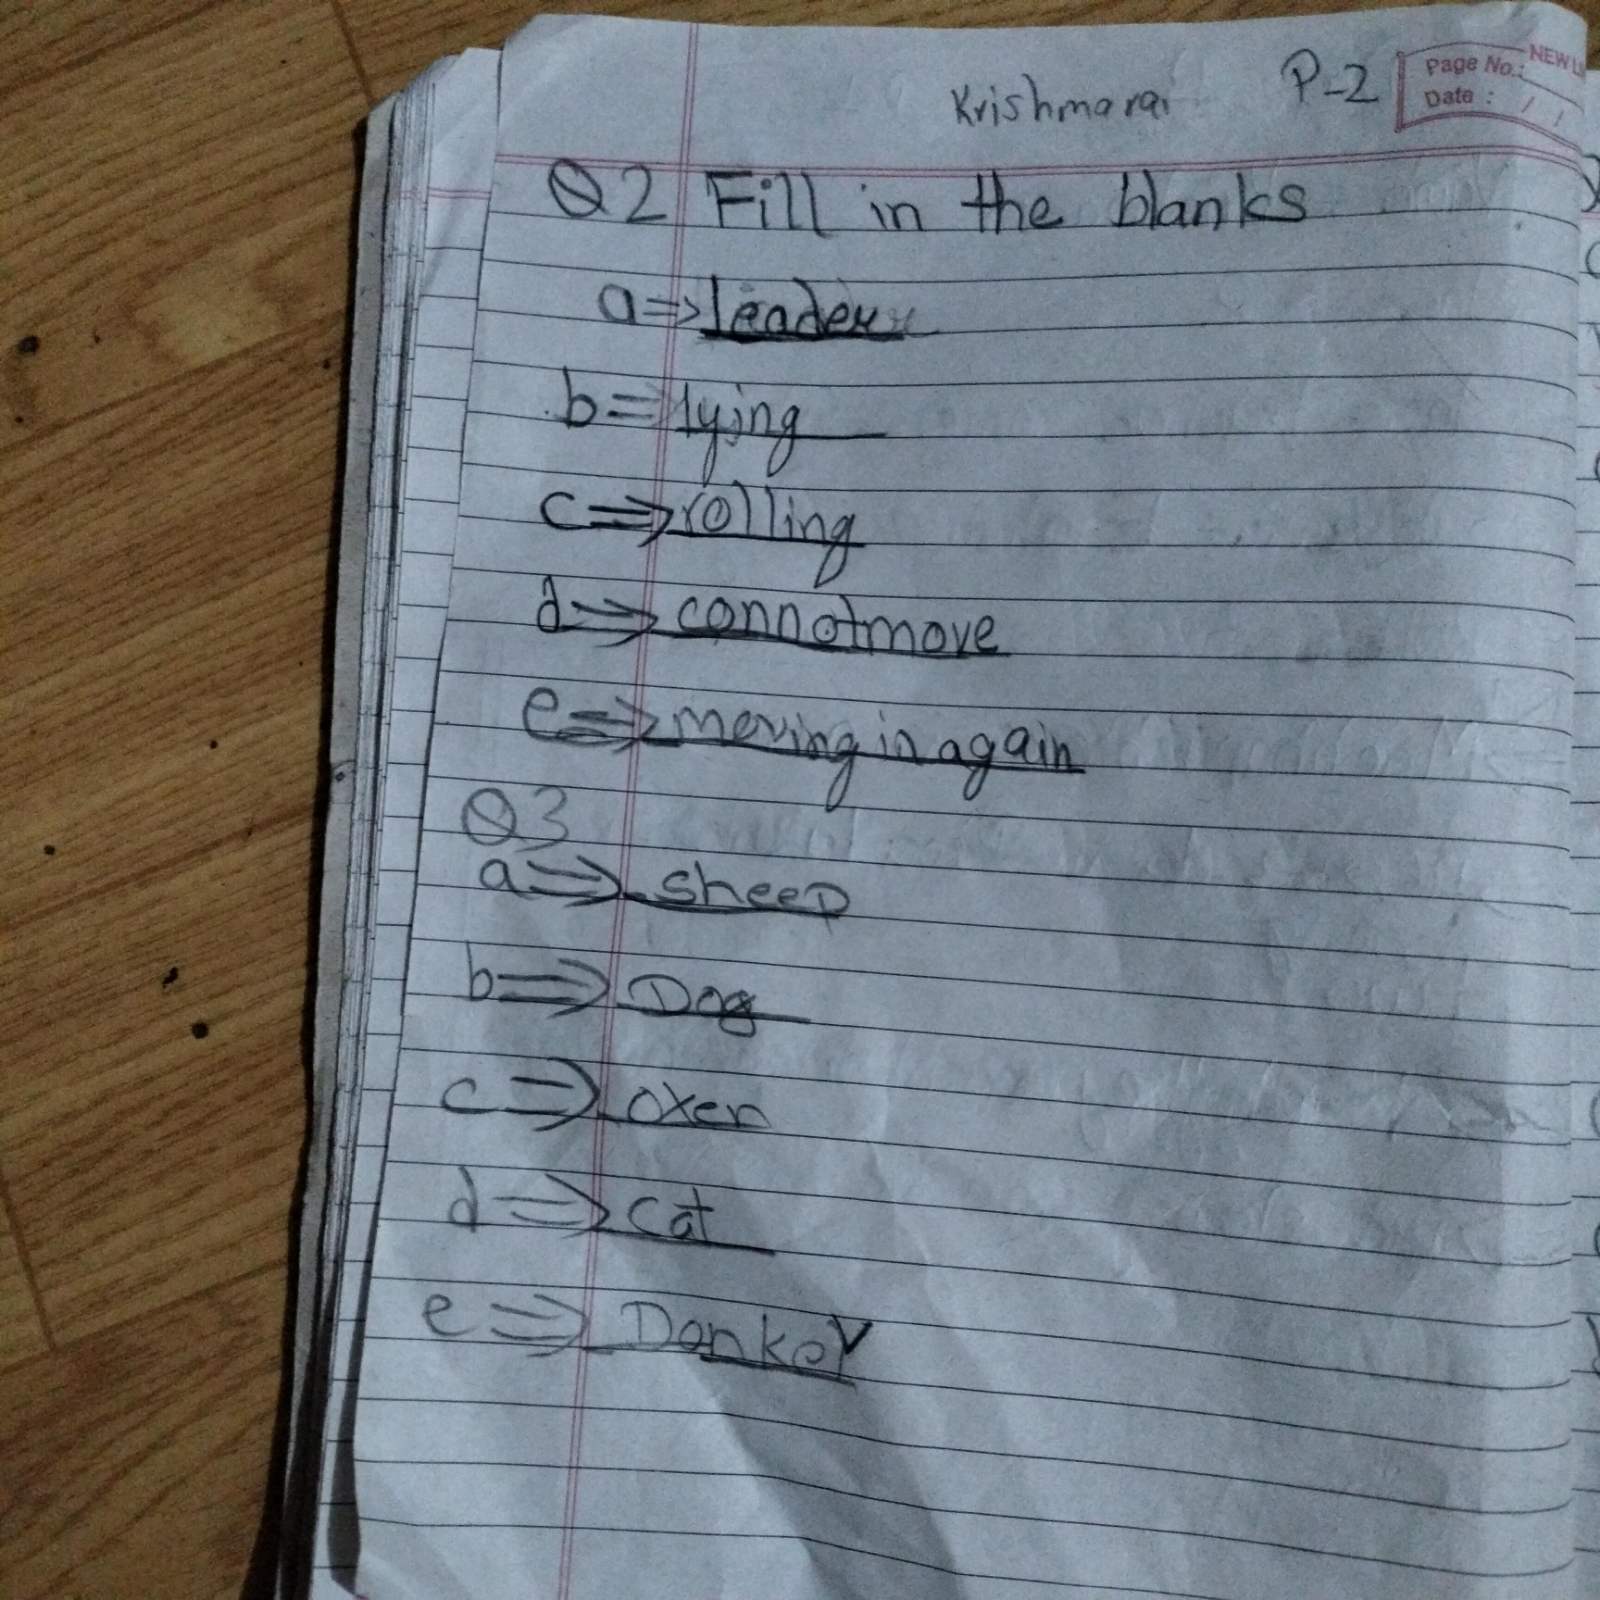 Krishmarai P-2 Page No.: NEW
Date : / /
Q2 Fill in the blanks
a⇒ leader
b= lying
c⇒ rolling
d⇒ connotmove
e⇒ moving in again
Q3
a⇒ sheep
b⇒ Dog
c⇒ oxen
d⇒ cat
e⇒ Donkey